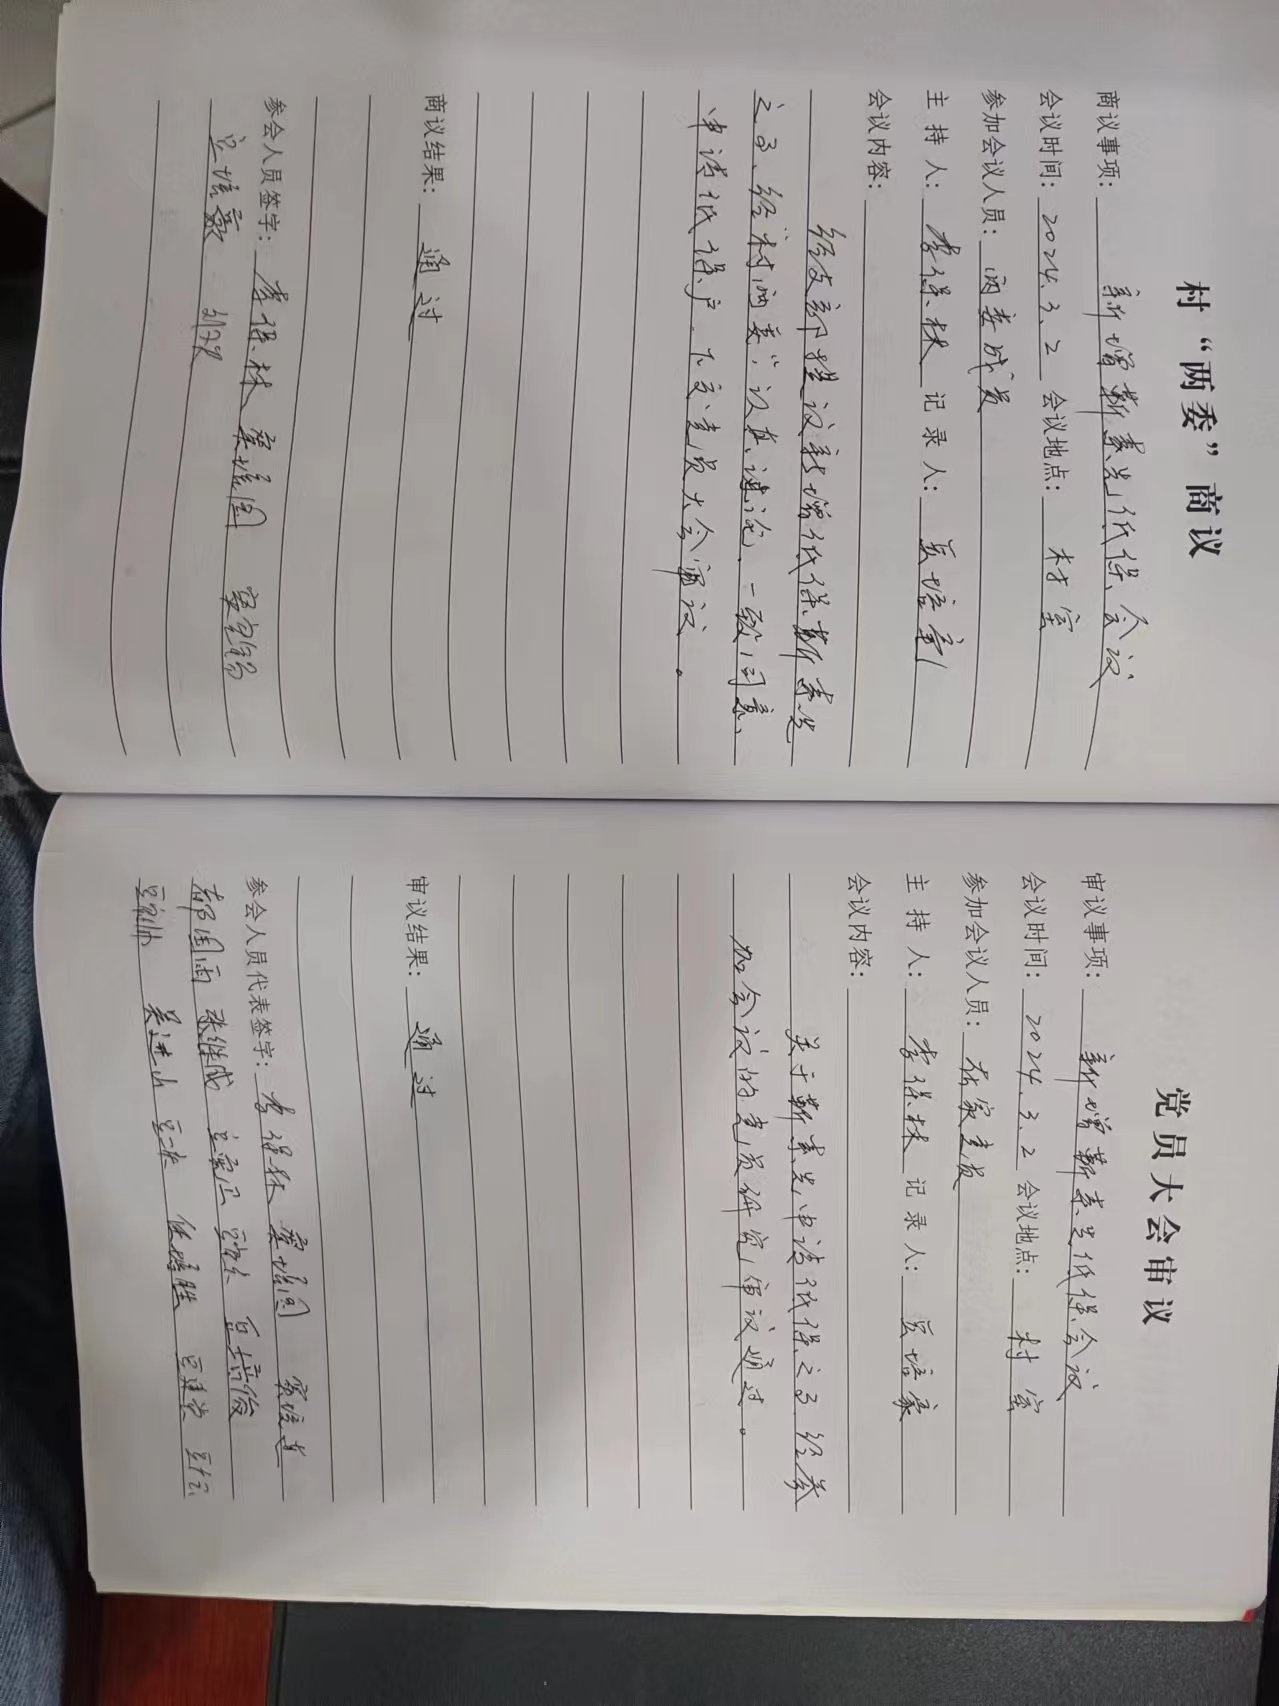 村“两委”商议
商议事项：新增靳素兰低保会议
会议时间：2024.3.2 会议地点：村室
参加会议人员：两委成员
主 持 人：李保林 记 录 人：
会议内容：
经支部提议新增低保靳素兰
之事、经村“两委”认真讨论，一致同意、
申请低保户，下交党员大会审议。
商议结果：通过
参会人员签字：李保林
党员大会审议
审议事项：新增靳素兰低保会议
会议时间：2024.3.2 会议地点：村室
参加会议人员：在家党员
主 持 人：李保林 记 录 人：
会议内容：
关于靳素兰申请低保之事 经参
加会议的党员研究，审议通过。
审议结果：通过
参会人员代表签字：李保林
郝国雨 张继成
吴进山